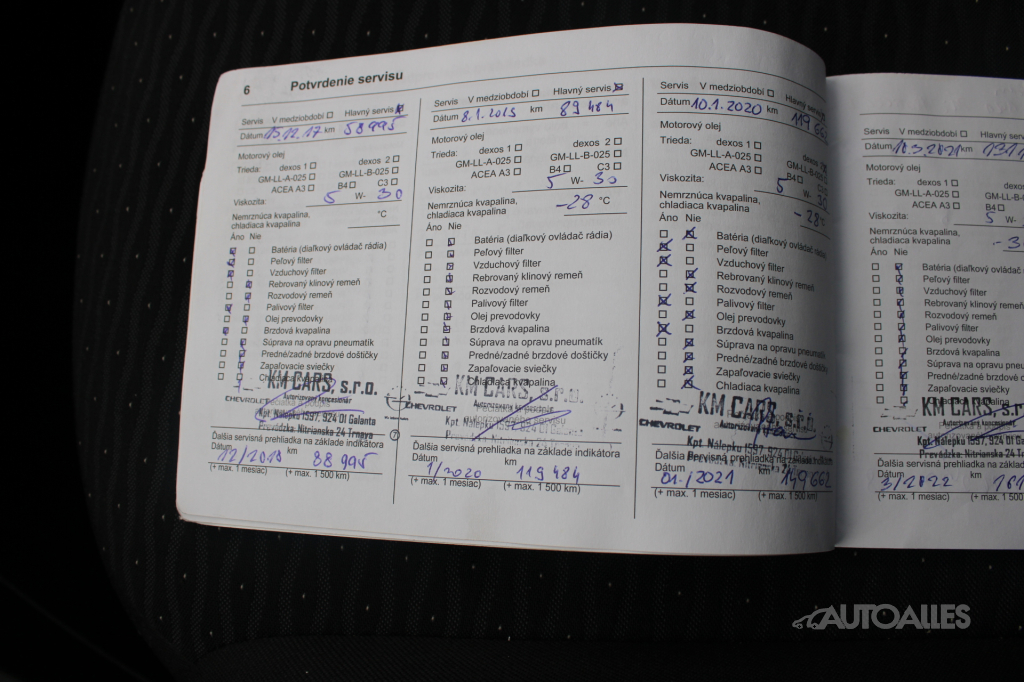 6 Potvrdenie servisu
Servis V medziobdobí Hlavný servis
Dátum 13.12.17 km 58 995
Motorový olej
Trieda: dexos 1 dexos 2
GM-LL-A-025 GM-LL-B-025
ACEA A3 B4 C3
Viskozita: 5 W- 30
Nemrznúca kvapalina,
chladiaca kvapalina °C
Áno Nie
Batéria (diaľkový ovládač rádia)
Peľový filter
Vzduchový filter
Rebrovaný klinový remeň
Rozvodový remeň
Palivový filter
Olej prevodovky
Brzdová kvapalina
Súprava na opravu pneumatík
Predné/zadné brzdové doštičky
Zapaľovacie sviečky
Chladiaca kvapalina
KM CARS, s.r.o.
Autorizovaný koncesionár
CHEVROLET
Kpt. Nálepku 1597, 924 01 Galanta
Prevádzka: Nitrianska 24 Trnava
Ďalšia servisná prehliadka na základe indikátora
Dátum km
12/2018 88 995
(+ max. 1 mesiac) (+ max. 1 500 km)
Servis V medziobdobí Hlavný servis
Dátum 8.1.2019 km 89 484
Motorový olej
Trieda: dexos 1 dexos 2
GM-LL-A-025 GM-LL-B-025
ACEA A3 B4 C3
Viskozita: 5 W- 30
Nemrznúca kvapalina,
chladiaca kvapalina -28 °C
Áno Nie
Batéria (diaľkový ovládač rádia)
Peľový filter
Vzduchový filter
Rebrovaný klinový remeň
Rozvodový remeň
Palivový filter
Olej prevodovky
Brzdová kvapalina
Súprava na opravu pneumatík
Predné/zadné brzdové doštičky
Zapaľovacie sviečky
Chladiaca kvapalina
KM CARS, s.r.o.
CHEVROLET
Ďalšia servisná prehliadka na základe indikátora
Dátum km
1/2020 119 484
(+ max. 1 mesiac) (+ max. 1 500 km)
Servis V medziobdobí Hlavný servis
Dátum 10.1.2020 km 119 662
Motorový olej
Trieda: dexos 1
GM-LL-A-025 GM-LL-B-025
ACEA A3 B4 C3
Viskozita: 5 W- 30
Nemrznúca kvapalina,
chladiaca kvapalina -28
Áno Nie
Batéria (diaľkový ovládač rádia)
Peľový filter
Vzduchový filter
Rebrovaný klinový remeň
Rozvodový remeň
Palivový filter
Olej prevodovky
Brzdová kvapalina
Súprava na opravu pneumatík
Predné/zadné brzdové doštičky
Zapaľovacie sviečky
Chladiaca kvapalina
KM CARS, s.r.o.
Autorizovaný
CHEVROLET
Kpt. Nálepku 1597, 924 01 Galanta
Prevádzka: Nitrianska 24 Trnava
Ďalšia servisná prehliadka na základe
Dátum km
01./2021 149 662
(+ max. 1 mesiac) (+ max. 1 500 km)
Servis V medziobdobí Hlavný
Dátum 10.3.2021 km 131
Motorový olej
Trieda: dexos 1
GM-LL-A-025 GM-
ACEA A3 B4
Viskozita: 5 W-
Nemrznúca kvapalina,
chladiaca kvapalina -3
Áno Nie
Batéria (diaľkový ovládač
Peľový filter
Vzduchový filter
Rebrovaný klinový remeň
Rozvodový remeň
Palivový filter
Olej prevodovky
Brzdová kvapalina
Súprava na opravu
Predné/zadné brzdové
Zapaľovacie sviečky
Chladiaca kvapalina
KM CARS, s
Autorizovaný
CHEVROLET
Kpt. Nálepku 1597, 924 01
Prevádzka: Nitrianska 24 T
Ďalšia servisná prehliadka na základe
Dátum km
3/2022 161
(+ max. 1 mesiac) (+ max. 1 500
AUTOALLES